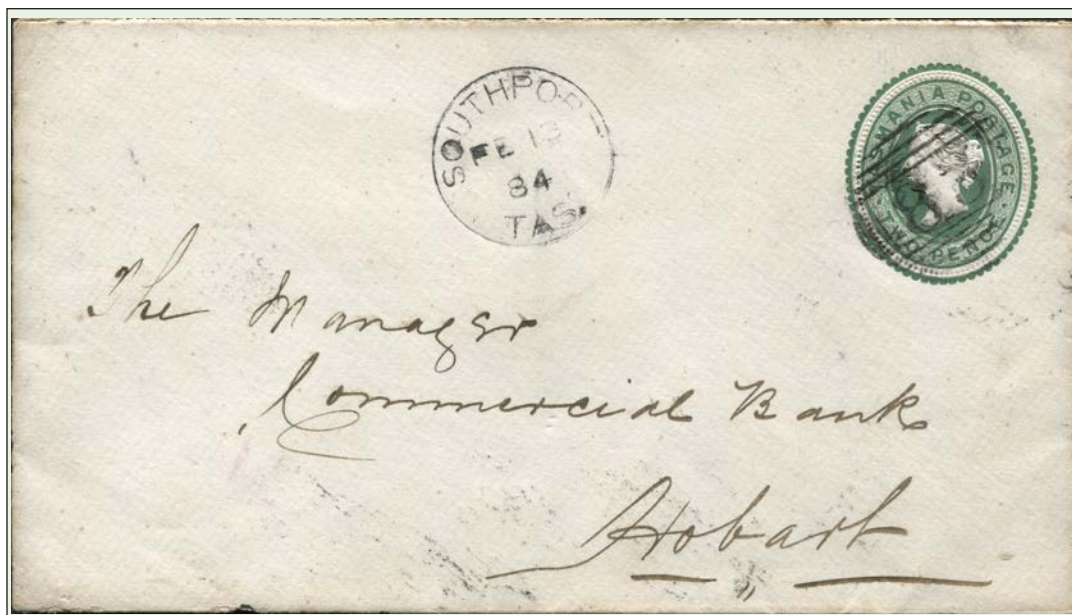 SOUTHPORT
FE 13
84
TAS.
TASMANIA POSTAGE
TWO PENCE
The Manager
Commercial Bank
Hobart